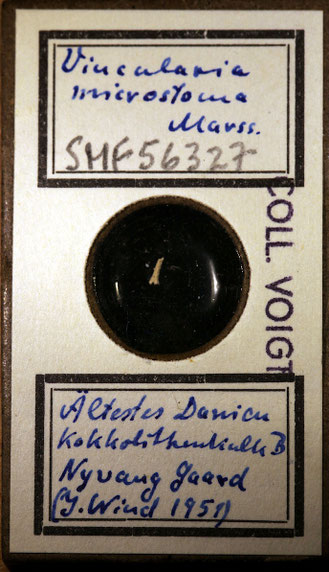 Vincularia
microstoma
Marss.
SMF 56327
COLL. VOIGT
Ältestes Danien
Kokkolithenkalk B
Nyvang Gaard
(J. Wind 1951)